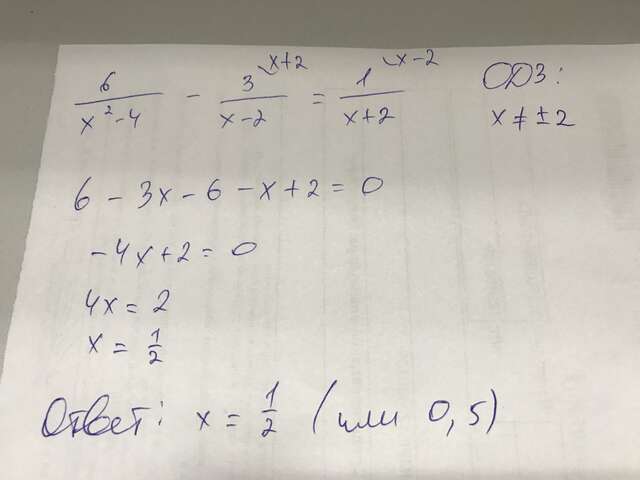 6/(x²-4) - 3/(x-2) (x+2 = 1/(x+2) (x-2 ОДЗ: x≠±2
6 - 3x - 6 - x + 2 = 0
-4x + 2 = 0
4x = 2
x = 1/2
Ответ: x = 1/2 (или 0,5)